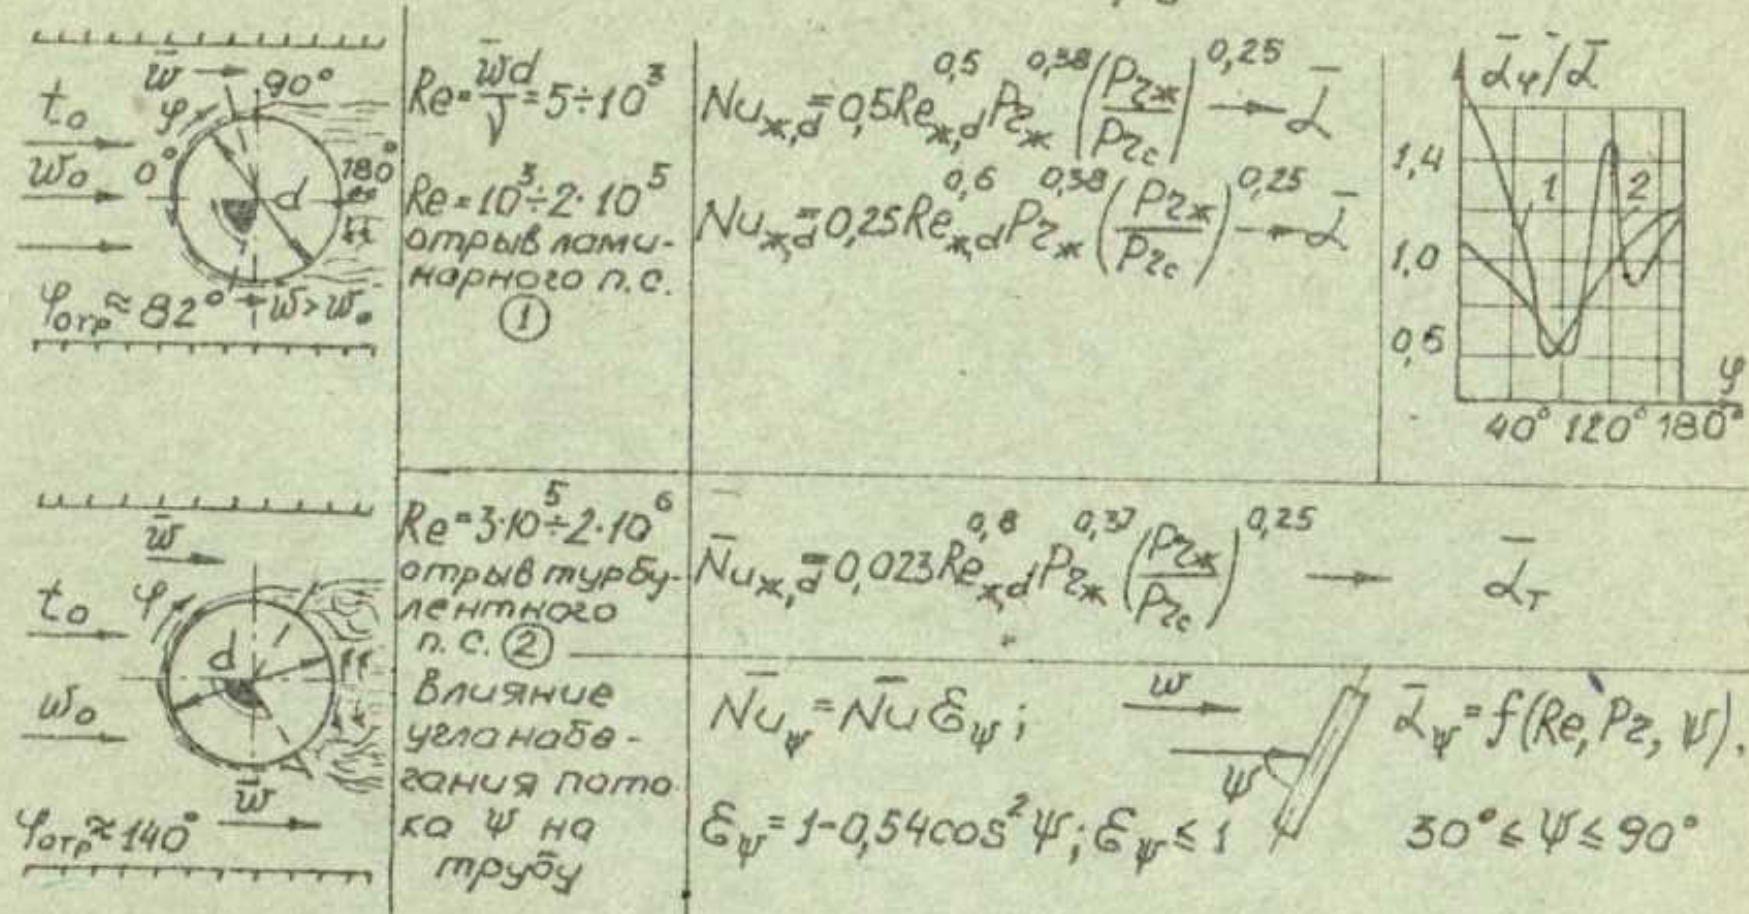 w̄
90°
t₀
φ
w₀
0°
180°
d
φотр ≈ 82°
w > w₀
Re = w̄d/ν = 5 ÷ 10³
Re = 10³ ÷ 2·10⁵
отрыв лами-
нарного п.с.
①
Nuж,d = 0,5 Reж,d^0,5 Prж^0,38 (Prж/Prс)^0,25 → ᾱ
Nuж,d = 0,25 Reж,d^0,6 Prж^0,38 (Prж/Prс)^0,25 → ᾱ
ᾱφ/ᾱ
1,4
1 2
1,0
0,6
φ
40° 120° 180°
w̄
t₀
φ
d
w₀
w̄
φотр ≈ 140°
Re = 3·10⁵ ÷ 2·10⁶
отрыв турбу-
лентного
п.с. ②
N̄uж,d = 0,023 Reж,d^0,8 Prж^0,37 (Prж/Prс)^0,25 → ᾱт
Влияние
угла набе-
гания пото
ка ψ на
трубу
N̄uψ = N̄u εψ;
w
ψ
ᾱψ = f(Re, Pr, ψ).
εψ = 1-0,54cos²ψ; εψ ≤ 1
30° ≤ ψ ≤ 90°